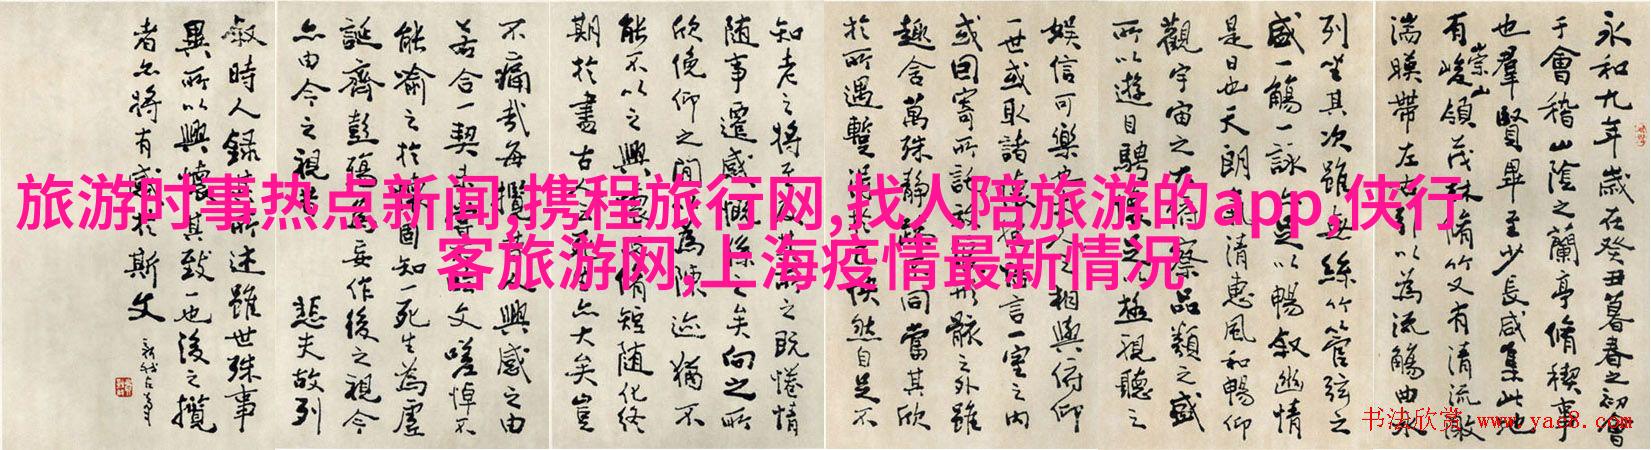 旅游时事热点新闻,携程旅行网,找人陪旅游的app,侠行
客旅游网,上海疫情最新情况
永和九年歲在癸丑暮春之初會
于會稽山陰之蘭亭脩稧事
也羣賢畢至少長咸集此地
有崇山峻領茂林脩竹又有清流激
湍暎帶左右引以為流觴曲水
列坐其次雖無絲竹管弦之
盛一觴一詠亦足以暢敘幽情
是日也天朗氣清惠風和暢仰
觀宇宙之大俯察品類之盛
所以遊目騁懷足以極視聽之
娛信可樂也夫人之相與俯仰
一世或取諸懷抱悟言一室之內
或因寄所託放浪形骸之外雖
趣舍萬殊靜躁不同當其欣
於所遇暫得於己快然自足不
知老之將至及其所之既惓情
隨事遷感慨係之矣向之所
欣俛仰之間以為陳迹猶不
能不以之興懷況脩短隨化終
期於盡古人云死生亦大矣豈
不痛哉每攬昔人興感之由
若合一契未嘗不臨文嗟悼不
能喻之於懷固知一死生為虛
誕齊彭殤為妄作後之視今
亦由今之視昔 悲夫故列
敘時人錄其所述雖世殊事
異所以興懷其致一也後之攬
者亦將有感於斯文
书法欣赏 www.yac8.com